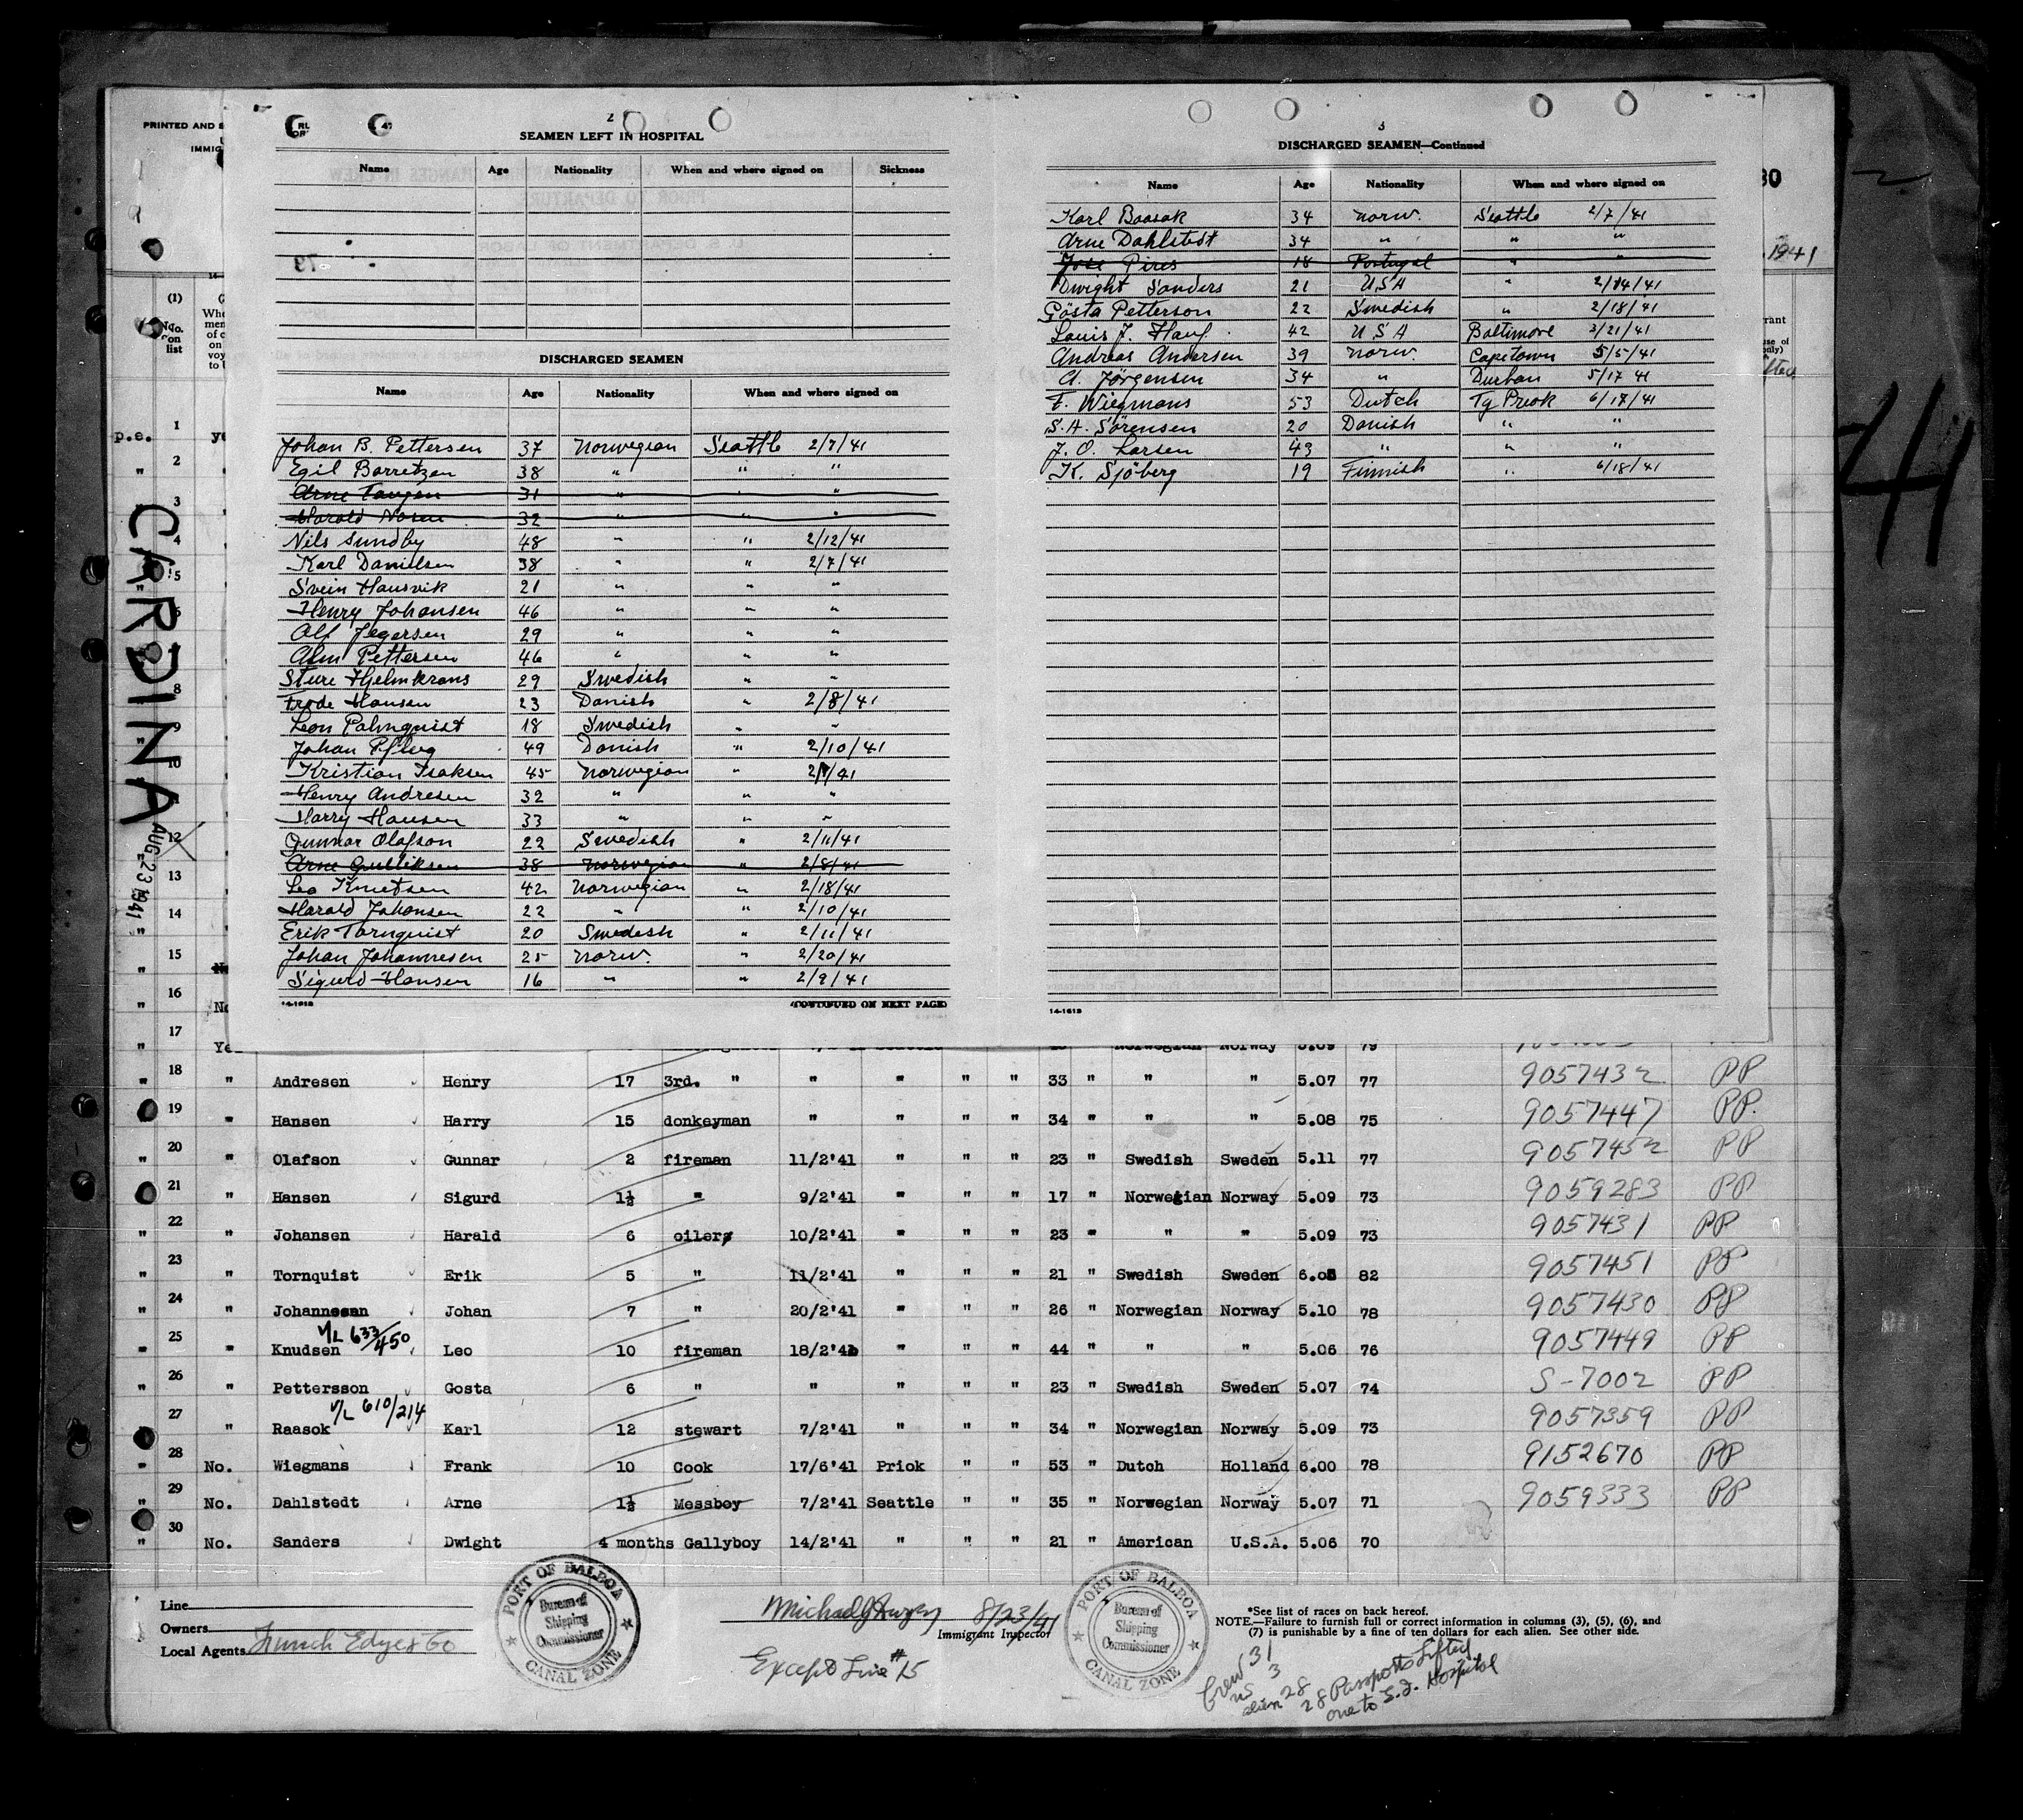 PRINTED AND
IMMIG
2
SEAMEN LEFT IN HOSPITAL
Name Age Nationality When and where signed on Sickness
DISCHARGED SEAMEN
Name Age Nationality When and where signed on
Johan B. Pettersen 37 Norwegian Seattle 2/7/41
Egil Barretzen 38 " " "
Arne Taugen 31 " " "
Harald Nosen 32 " " "
Nils Sundby 48 " " 2/12/41
Karl Danielsen 38 " " 2/7/41
Svein Hausvik 21 " " "
Henry Johansen 46 " " "
Alf Jegersen 29 " " "
Alm Pettersen 46 " " "
Sture Hjelmkrans 29 Swedish " "
Frode Hansen 23 Danish " 2/8/41
Leon Palmquist 18 Swedish " "
Johan Pflug 49 Danish " 2/10/41
Kristian Isaksen 45 Norwegian "
Henry Andresen 32 " " "
Harry Hansen 33 " " "
Gunnar Olafson 22 Swedish " 2/11/41
Arne Gulliksen 38 Norwegian " 2/8/41
Leo Knutsen 42 Norwegian " 2/18/41
Harald Johansen 22 " " 2/10/41
Erik Tornquist 20 Swedish " 2/11/41
Johan Johannesen 25 Norw. " 2/20/41
Sigurd Hansen 16 " " 2/9/41
14-1618 (CONTINUED ON NEXT PAGE)
3
DISCHARGED SEAMEN—Continued
Name Age Nationality When and where signed on
Karl Raasok 34 Norw. Seattle 2/7/41
Arne Dahlstedt 34 " " "
Jose Pires 18 Portugal " "
Dwight Sanders 21 USA " 2/14/41
Gösta Petterson 22 Swedish " 2/18/41
Louis J. Hauf. 42 USA Baltimore 3/21/41
Andreas Andersen 39 Norw. Capetown 5/5/41
A. Jörgensen 34 " Durban 5/17 41
F. Wiegmans 53 Dutch Tg Priok 6/17/41
S.A. Sörensen 20 Danish " "
J. O. Larsen 43 " " "
K. Sjöberg 19 Finnish " 6/18/41
14-1618
30
1941
41
CARDINA
AUG 23 1941
(1)
No. on list
p.e.
1
2
3
4
5
6
7
8
9
10
12
13
14
15
16
17 " Yes
18 " " Andresen Henry 17 3rd. " " " " " 33 " " " 5.07 77 9057432 PP
19 " " Hansen Harry 15 donkeyman " " " " 34 " " " 5.08 75 9057447 PP.
20 " " Olafson Gunnar 2 fireman 11/2'41 " " " 23 " Swedish Sweden 5.11 77 9057452 PP
21 " " Hansen Sigurd 1½ " 9/2'41 " " " 17 " Norwegian Norway 5.09 73 9059283 PP
22 " " Johansen Harald 6 oiler 10/2'41 " " " 23 " " " 5.09 73 9057431 PP
23 " " Tornquist Erik 5 " 11/2'41 " " " 21 " Swedish Sweden 6.05 82 9057451 PP
24 " " Johannesen Johan 7 " 20/2'41 " " " 26 " Norwegian Norway 5.10 78 9057430 PP
V/L 633/450
25 " " Knudsen Leo 10 fireman 18/2'41 " " " 44 " " " 5.06 76 9057449 PP
26 " " Pettersson Gosta 6 " " " " " 23 " Swedish Sweden 5.07 74 S-7002 PP
V/L 610/214
27 " " Raasok Karl 12 stewart 7/2'41 " " " 34 " Norwegian Norway 5.09 73 9057359 PP
28 " No. Wiegmans Frank 10 Cook 17/6'41 Priok " " 53 " Dutch Holland 6.00 78 9152670 PP
29 " No. Dahlstedt Arne 1½ Messboy 7/2'41 Seattle " " 35 " Norwegian Norway 5.07 71 9059333 PP
30 " No. Sanders Dwight 4 months Gallyboy 14/2'41 " " " 21 " American U.S.A. 5.06 70
Line
Owners
Local Agents
PORT OF BALBOA
Bureau of Shipping Commissioner
CANAL ZONE
8/23/41
Immigrant Inspector
Except Line #15
PORT OF BALBOA
Bureau of Shipping Commissioner
CANAL ZONE
*See list of races on back hereof.
NOTE.—Failure to furnish full or correct information in columns (3), (5), (6), and
(7) is punishable by a fine of ten dollars for each alien. See other side.
Crew 31
US 3
alien 28
28 Passports Lifted
one to S.F. Hospital